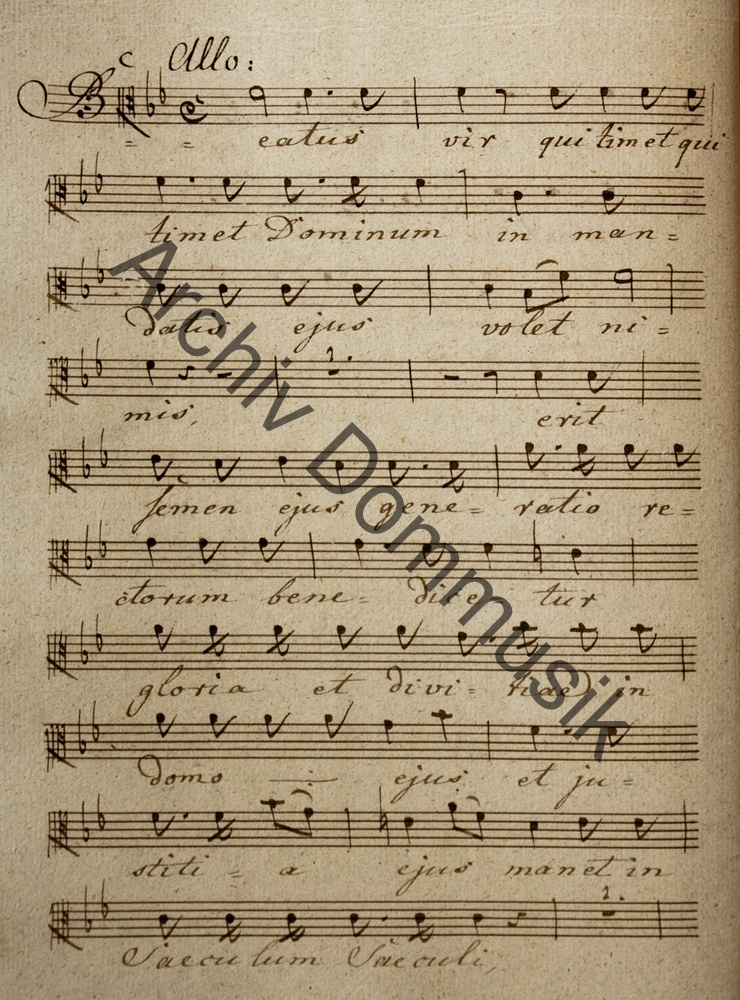 c Allo:
B = = eatus vir qui timet qui
timet Dominum in man=
datis ejus volet ni=
2.
mis, erit
semen ejus gene= ratio re=
ctorum bene= dice tur
gloria et divi= tiae in
domo ejus et ju=
stiti = a ejus manet in
2.
Saeculum Saeculi,
Archiv Dommusik